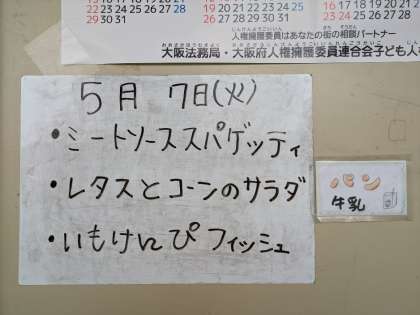 22 23 24 25 26 27 28
29 30 31
23 24 25 26 27 28 29
30 31
人権擁護委員はあなたの街の相談パートナー
大阪法務局・大阪府人権擁護委員連合会子ども人
5月 7日(火)
・ミートソーススパゲッティ
・レタスとコーンのサラダ
・いもけんぴフィッシュ
パン
牛乳